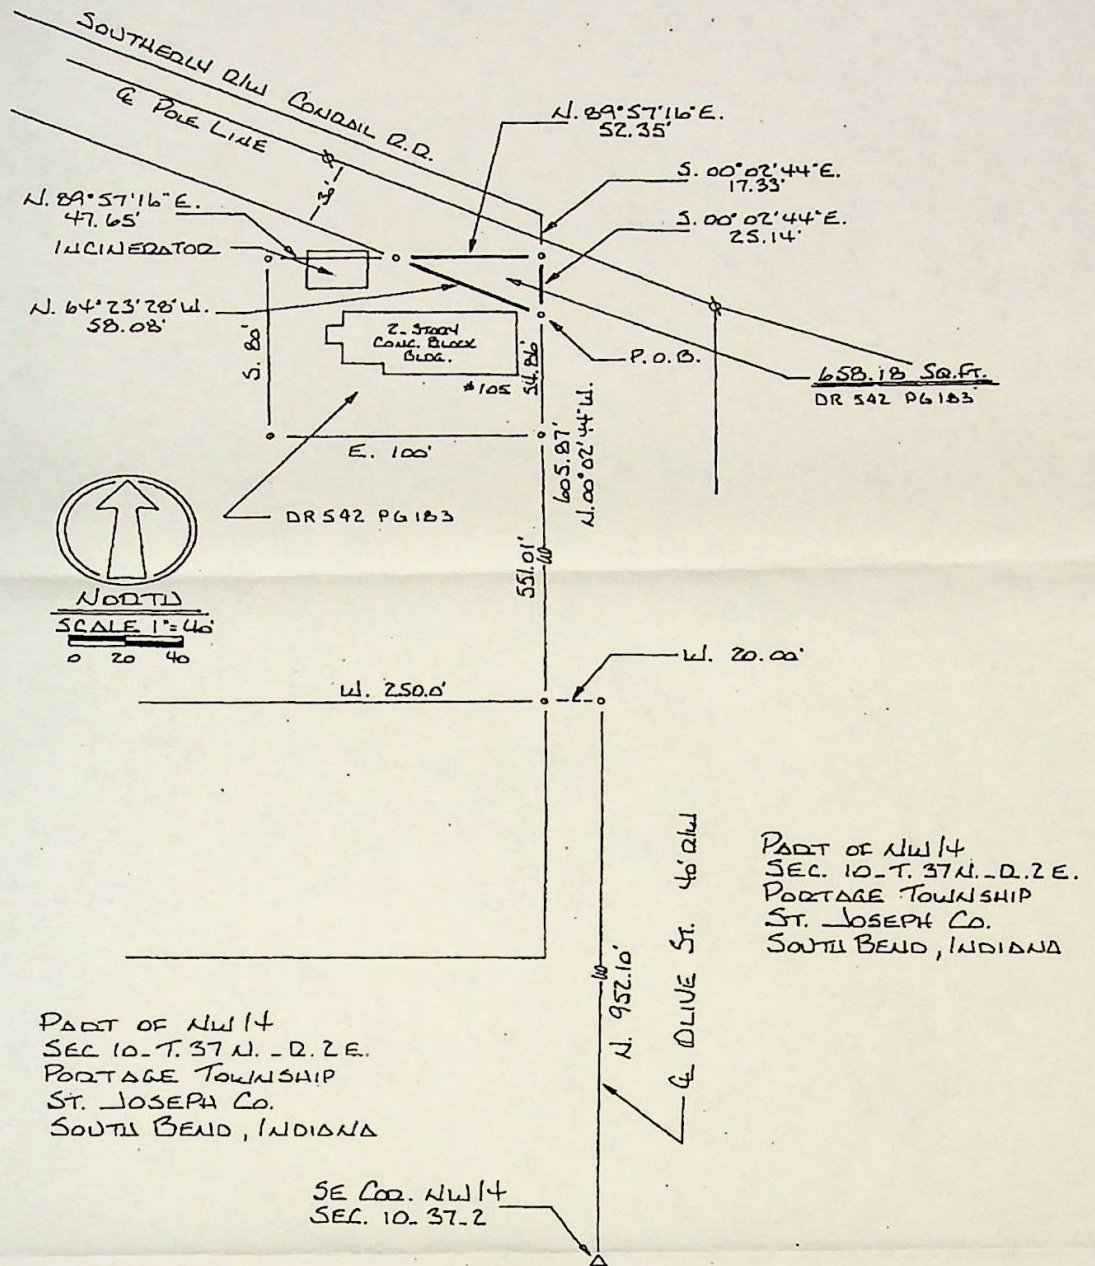 SOUTHERLY R/W CONRAIL R.R.
℄ POLE LINE
N. 89°57'16"E.
52.35'
S. 00°02'44"E.
17.33'
S. 00°02'44"E.
25.14'
N. 89°57'16"E.
47.65'
INCINERATOR
N. 64°23'28"W.
58.08'
S. 80'
2-STORY
CONC. BLOCK
BLDG.
#105
54.86'
P.O.B.
658.18 SQ.FT.
DR 542 PG 183
E. 100'
605.87'
N.00°02'44"W.
DR 542 PG 183
551.01'
NORTH
SCALE 1"=40'
0 20 40
W. 250.0'
W. 20.00'
N. 952.10'
℄ OLIVE ST. 40' R/W
PART OF NW 1/4
SEC. 10-T. 37 N.-R. 2 E.
PORTAGE TOWNSHIP
ST. JOSEPH CO.
SOUTH BEND, INDIANA
PART OF NW 1/4
SEC 10-T. 37 N.-R. 2 E.
PORTAGE TOWNSHIP
ST. JOSEPH CO.
SOUTH BEND, INDIANA
SE COR. NW 1/4
SEC. 10-37-2